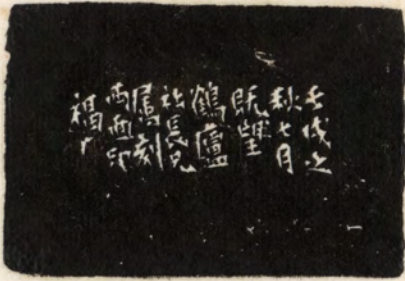 壬戌之
秋七月
既望
鶴廬
社長兄
屬刻
兩面印
福厂